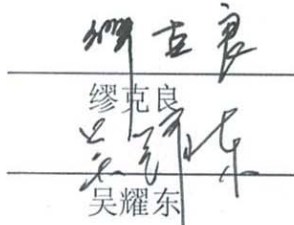 缪克良
缪克良
吴耀东
吴耀东